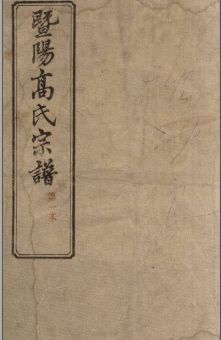 暨陽高氏宗譜
第一本